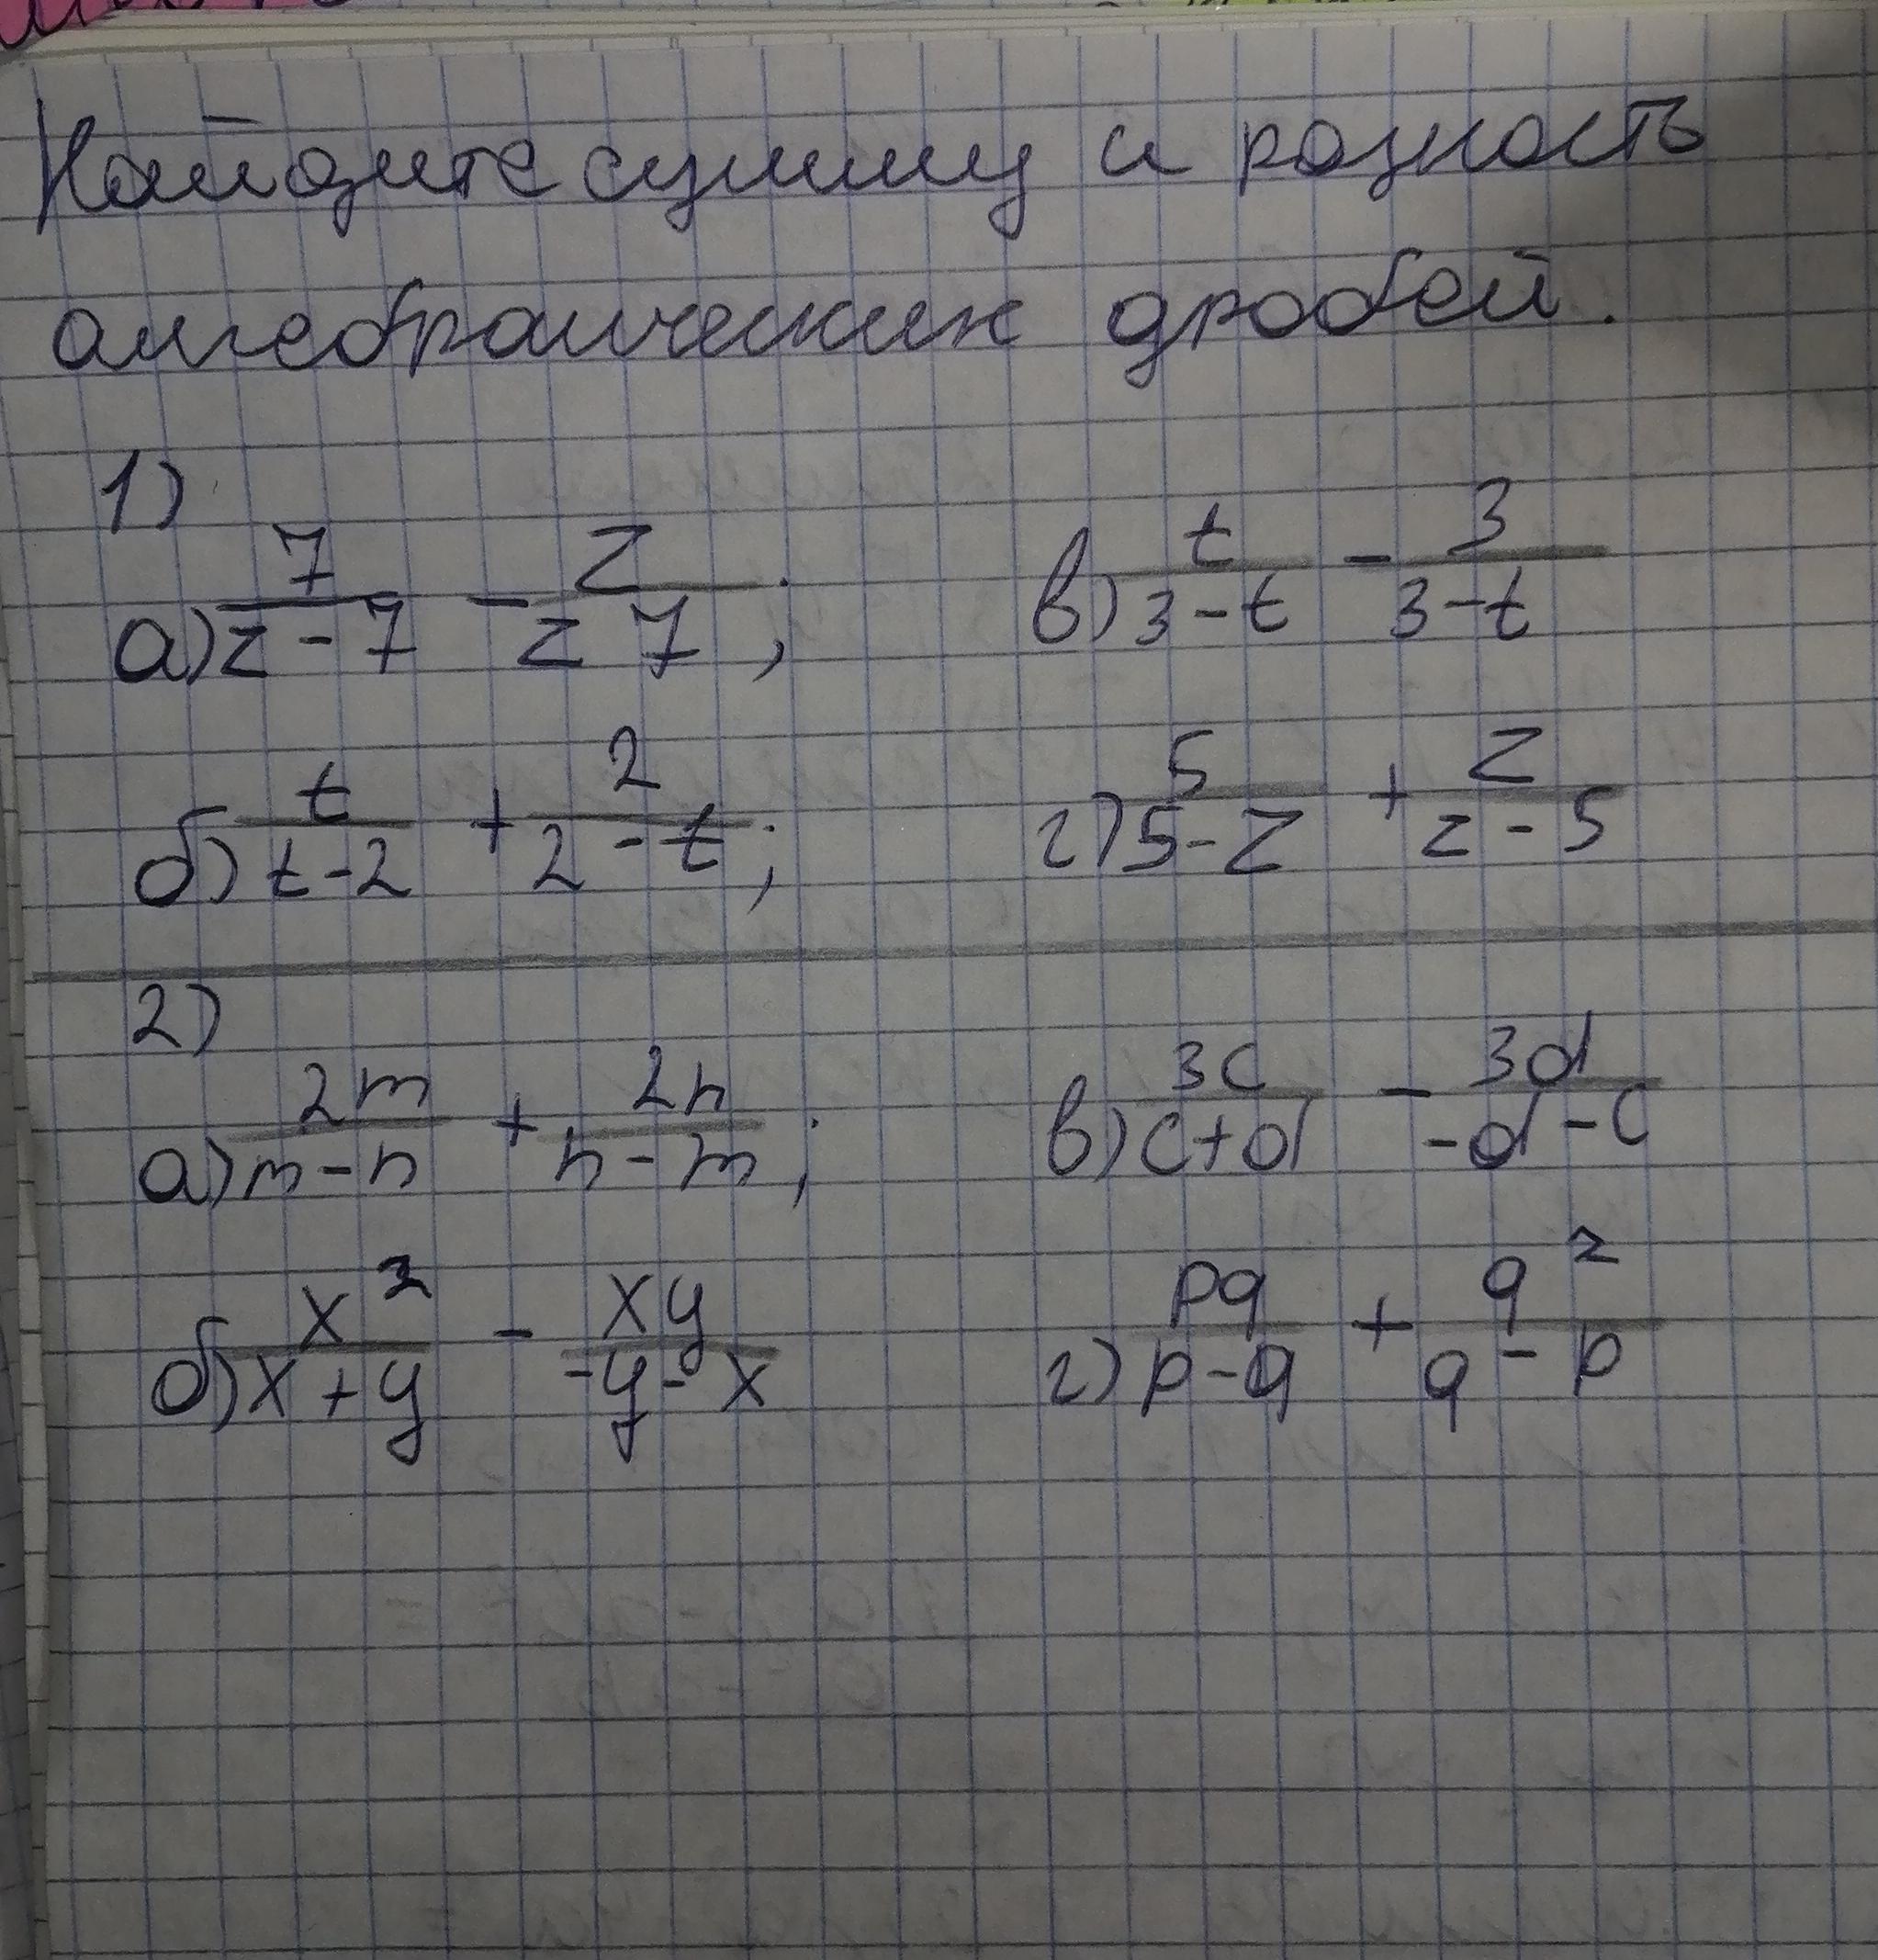 Найдите сумму и разность
алгебраических дробей.
1)
а) 7/(z-7) - z/(z 7);
в) t/(3-t) - 3/(3-t)
б) t/(t-2) + 2/(2-t);
г) 5/(5-z) + z/(z-5)
2)
а) 2m/(m-n) + 2n/(n-m);
в) 3c/(c+d) - 3d/(-d-c)
б) x²/(x+y) - xy/(-y-x)
г) pq/(p-q) + q²/(q-p)